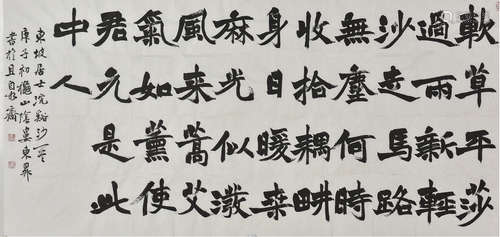 軟草平莎
過雨新輕
沙走馬路
無塵何時
收拾耦畊
身日暖桒
麻光似潑
風来蒿艾
氣如薰使
君元是此
中人
東坡居士浣谿沙一
庚子初穐山陰婁東昇
書於且自齋